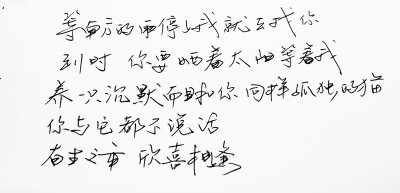 等南方的雨停时我就去找你
到时 你要晒着太阳等着我
养一只沉默而且和你同样孤独的猫
你与它都不说话
有生之年 欣喜相逢